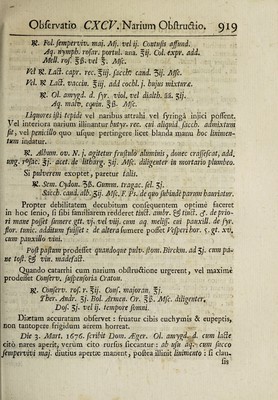 Observatio CXCV. Narium Obstructio, 919
℞. Fol. sempervív. maj. Mj. vel ij. Contusis affund.
Aq. nymph. rosar. portul. ana. ℥ij. Col. expr. add.
Mell. ros. ℥ß. vel ℥. Msc.
Vel ℞. Lact. capr. rec. ℥iij. sacch: cand. ℥ij. Msc.
Vel ℞. Lact. vaccin. ℥iij. add cochl. j. hujus mixturæ.
℞. Ol. amygd. d. ʒyr. viol. vel dialth. āā. ℥ij.
Aq. malv. cqmn. ℥ß. Msc.
Liquores isti tepidi vel naribus attrahi vel syringâ injici possent.
Vel interiora narium illinantur butyr. rec. cui aliquid sacch. admixtum
sit, vel penicillo quo usque pertingere licet blanda manu hoc linimen-
tum indatur.
℞. Album. ov. N. j. agitetur frustulo aluminis, donec crassescat, add.
ung. rosar. ʒj. acet. de litharg. ʒij. Msc. diligenter in mortario plumbeo.
Si pulverem exoptet, paretur talis.
℞. Sem. Cydon. ℥ß. Gumm. tragac. ʒij.
Sacch. cand. alb. ℥ij. Msc. F. Plv. de quo subindè parum hauriatur.
Propter debilitatem decubitum consequentem optimè faceret
in hoc senio, si sibi familiarem redderet tinct. ambr.
ri mane posset sumere gtt. vj. vel viij. cum aq. meliss. cui pauxill. de syr.
flor. tunic. additum fuisset: de altera sumere posset Vesperi hor. 5. gt. xv,
cum pauxillo vini.
Post pastum prodesset quandoque pulv. stom. Birckm. ad ʒj. cum pa-
ne tost. & vin. madefact.
Quando catarrhi cum narium obstructione urgerent, vel maximè
prodesset Conserv. suspensoria Craton.
℞. Conserv. ros. r. ℥ij. Cons. majoran. ℥j.
Ther. Andr. ℥j. Bol. Armen. Or. ℥ß. Msc. diligenter,
Dos. ℥j. vel ij. tempore somni.
Diætam accuratam observet: fruatur cibis euchymis & eupeptis,
non tantopere frigidum aerem horreat.
Die 3. Mart. 1676. scribit Dom. Æger. Ol. amygd. d. cum lacte
citò nares aperit, verùm citò rursus succantur: ab usu aq. cum succo
sempervivi maj. diutius apertæ manent, postea illinit linimento: si clau-
sis